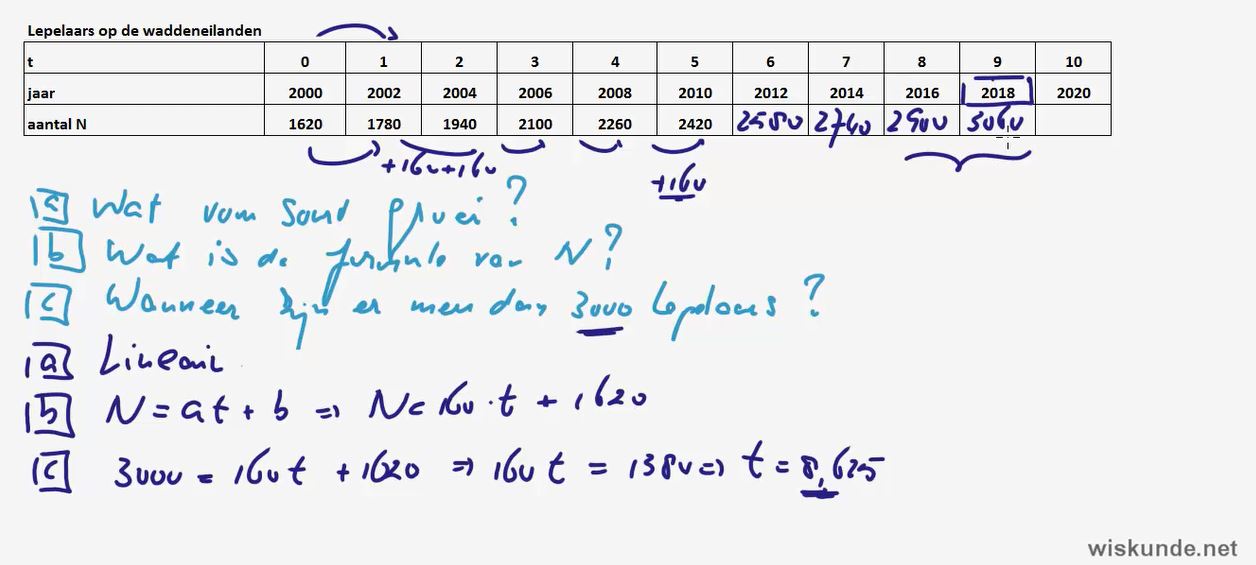 Lepelaars op de waddeneilanden
t 0 1 2 3 4 5 6 7 8 9 10
jaar 2000 2002 2004 2006 2008 2010 2012 2014 2016 2018 2020
aantal N 1620 1780 1940 2100 2260 2420 2580 2740 2900 3060
+160 +160 +160
Wat voor soord groei?
b Wat is de formule van N?
c Wanneer zijn er meer dan 3000 Lepelaars?
a Lineair
b N = at + b ⇒ N = 160 · t + 1620
c 3000 = 160t + 1620 ⇒ 160t = 1380 ⇒ t = 8,625
wiskunde.net